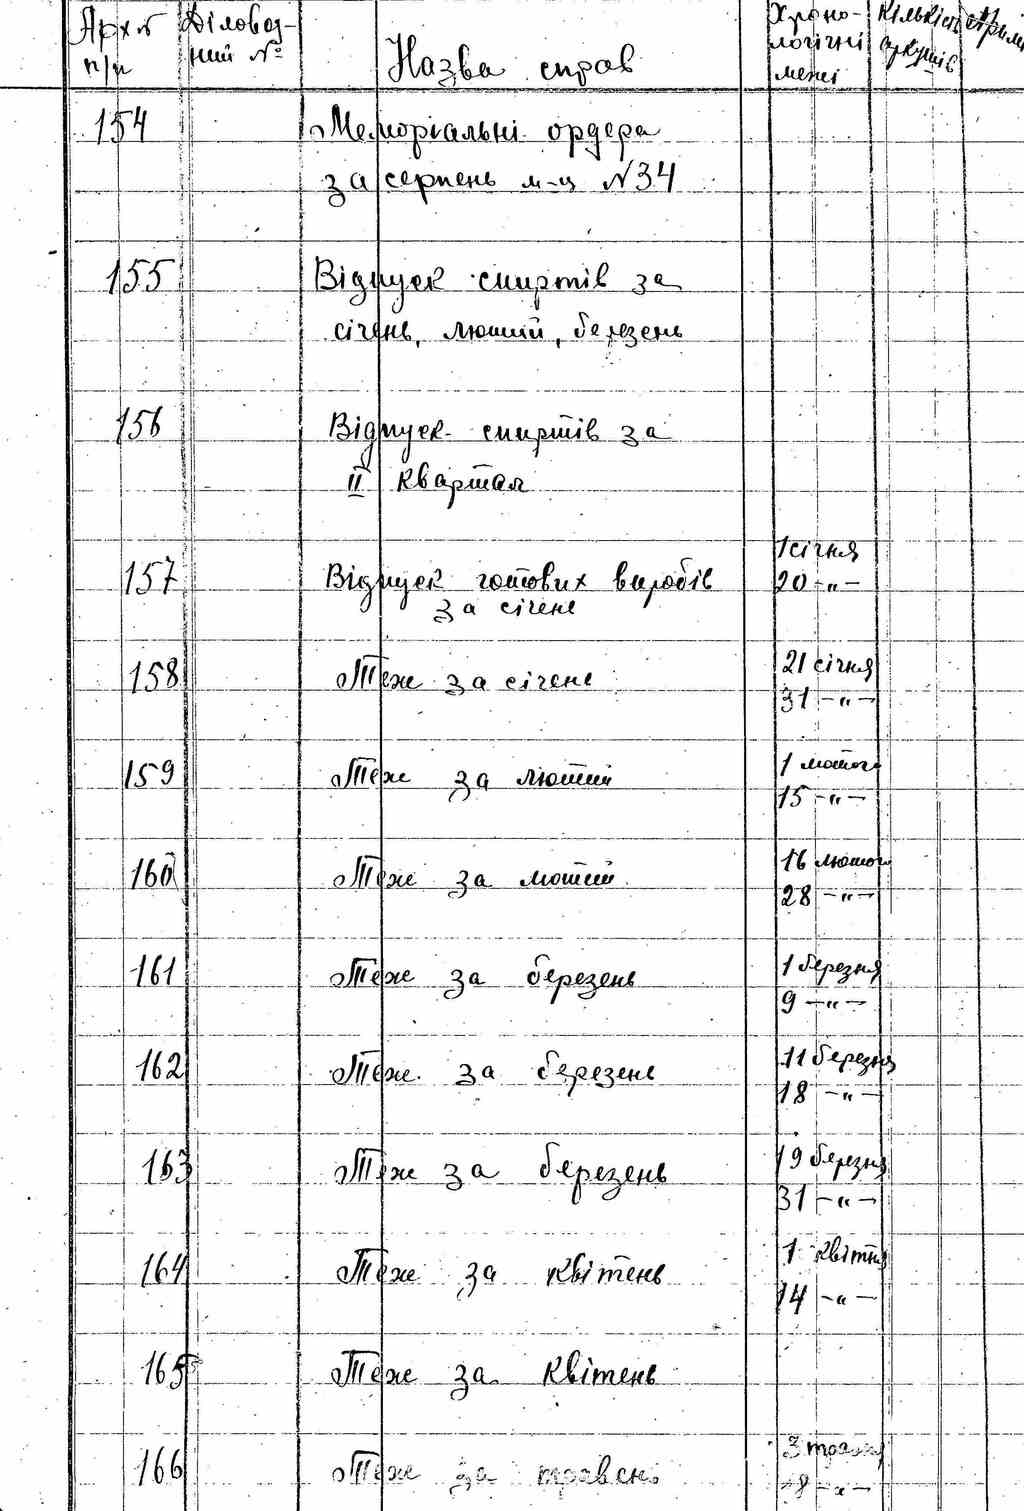 Арх № п/п | Діловод-ний № | Назва справ | Хроно-логічні межі | Кількість аркушів
154 Меморіальні ордера
за серпень м-ц N34
155 Відпуск спиртів за
січень, лютий, березень
156 Відпуск спиртів за
II квартал
1 січня
157 Відпуск готових виробів 20 -„-
за січень
158 Теж за січень 21 січня
31 -„-
159 Теж за лютий 1 лютого
15 -„-
160 Теж за лютий 16 лютого
28 -„-
161 Теж за березень 1 березня
9 -„-
162 Теж за березень 11 березня
18 -„-
163 Теж за березень 19 березня
31 -„-
164 Теж за квітень 1 квітня
14 -„-
165 Теж за квітень
166 Теж за травень 3 травня
8 -„-